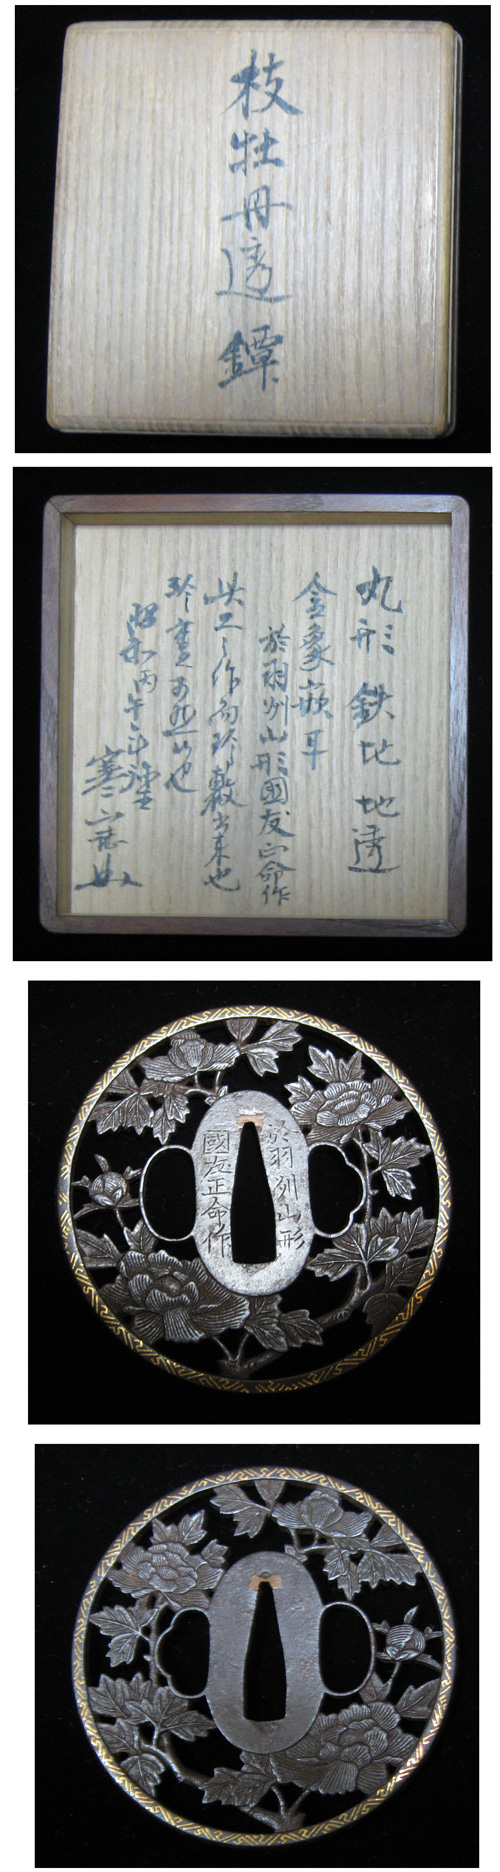 枝牡丹透鐔
丸形鉄地地透
金象嵌耳
於羽州山形國友正命作
此工之作尚珍敷出来也
珍重可然者也
昭和丙午年
寒山誌
於羽州山形
國友正命作